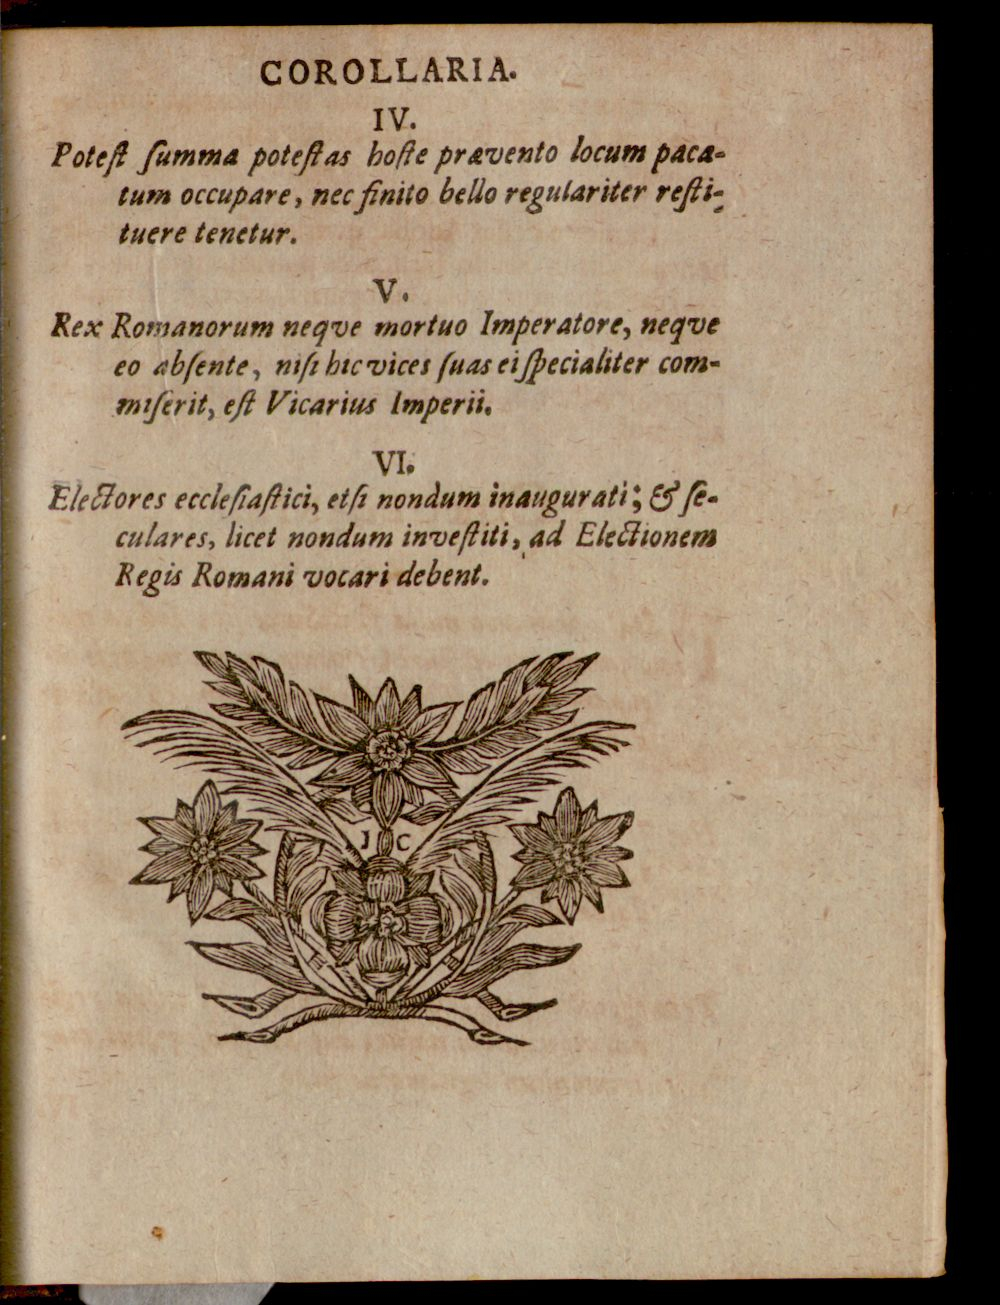 COROLLARIA.
IV.
Poteſt ſumma poteſtas hoſte prævento locum paca-
tum occupare, nec finito bello regulariter reſti-
tuere tenetur.
V.
Rex Romanorum neqve mortuo Imperatore, neqve
eo abſente, niſi hic vices ſuas ei ſpecialiter com-
miſerit, eſt Vicarius Imperii.
VI.
Electores eccleſiaſtici, etſi nondum inaugurati; & ſe-
culares, licet nondum inveſtiti, ad Electionem
Regis Romani vocari debent.
I C